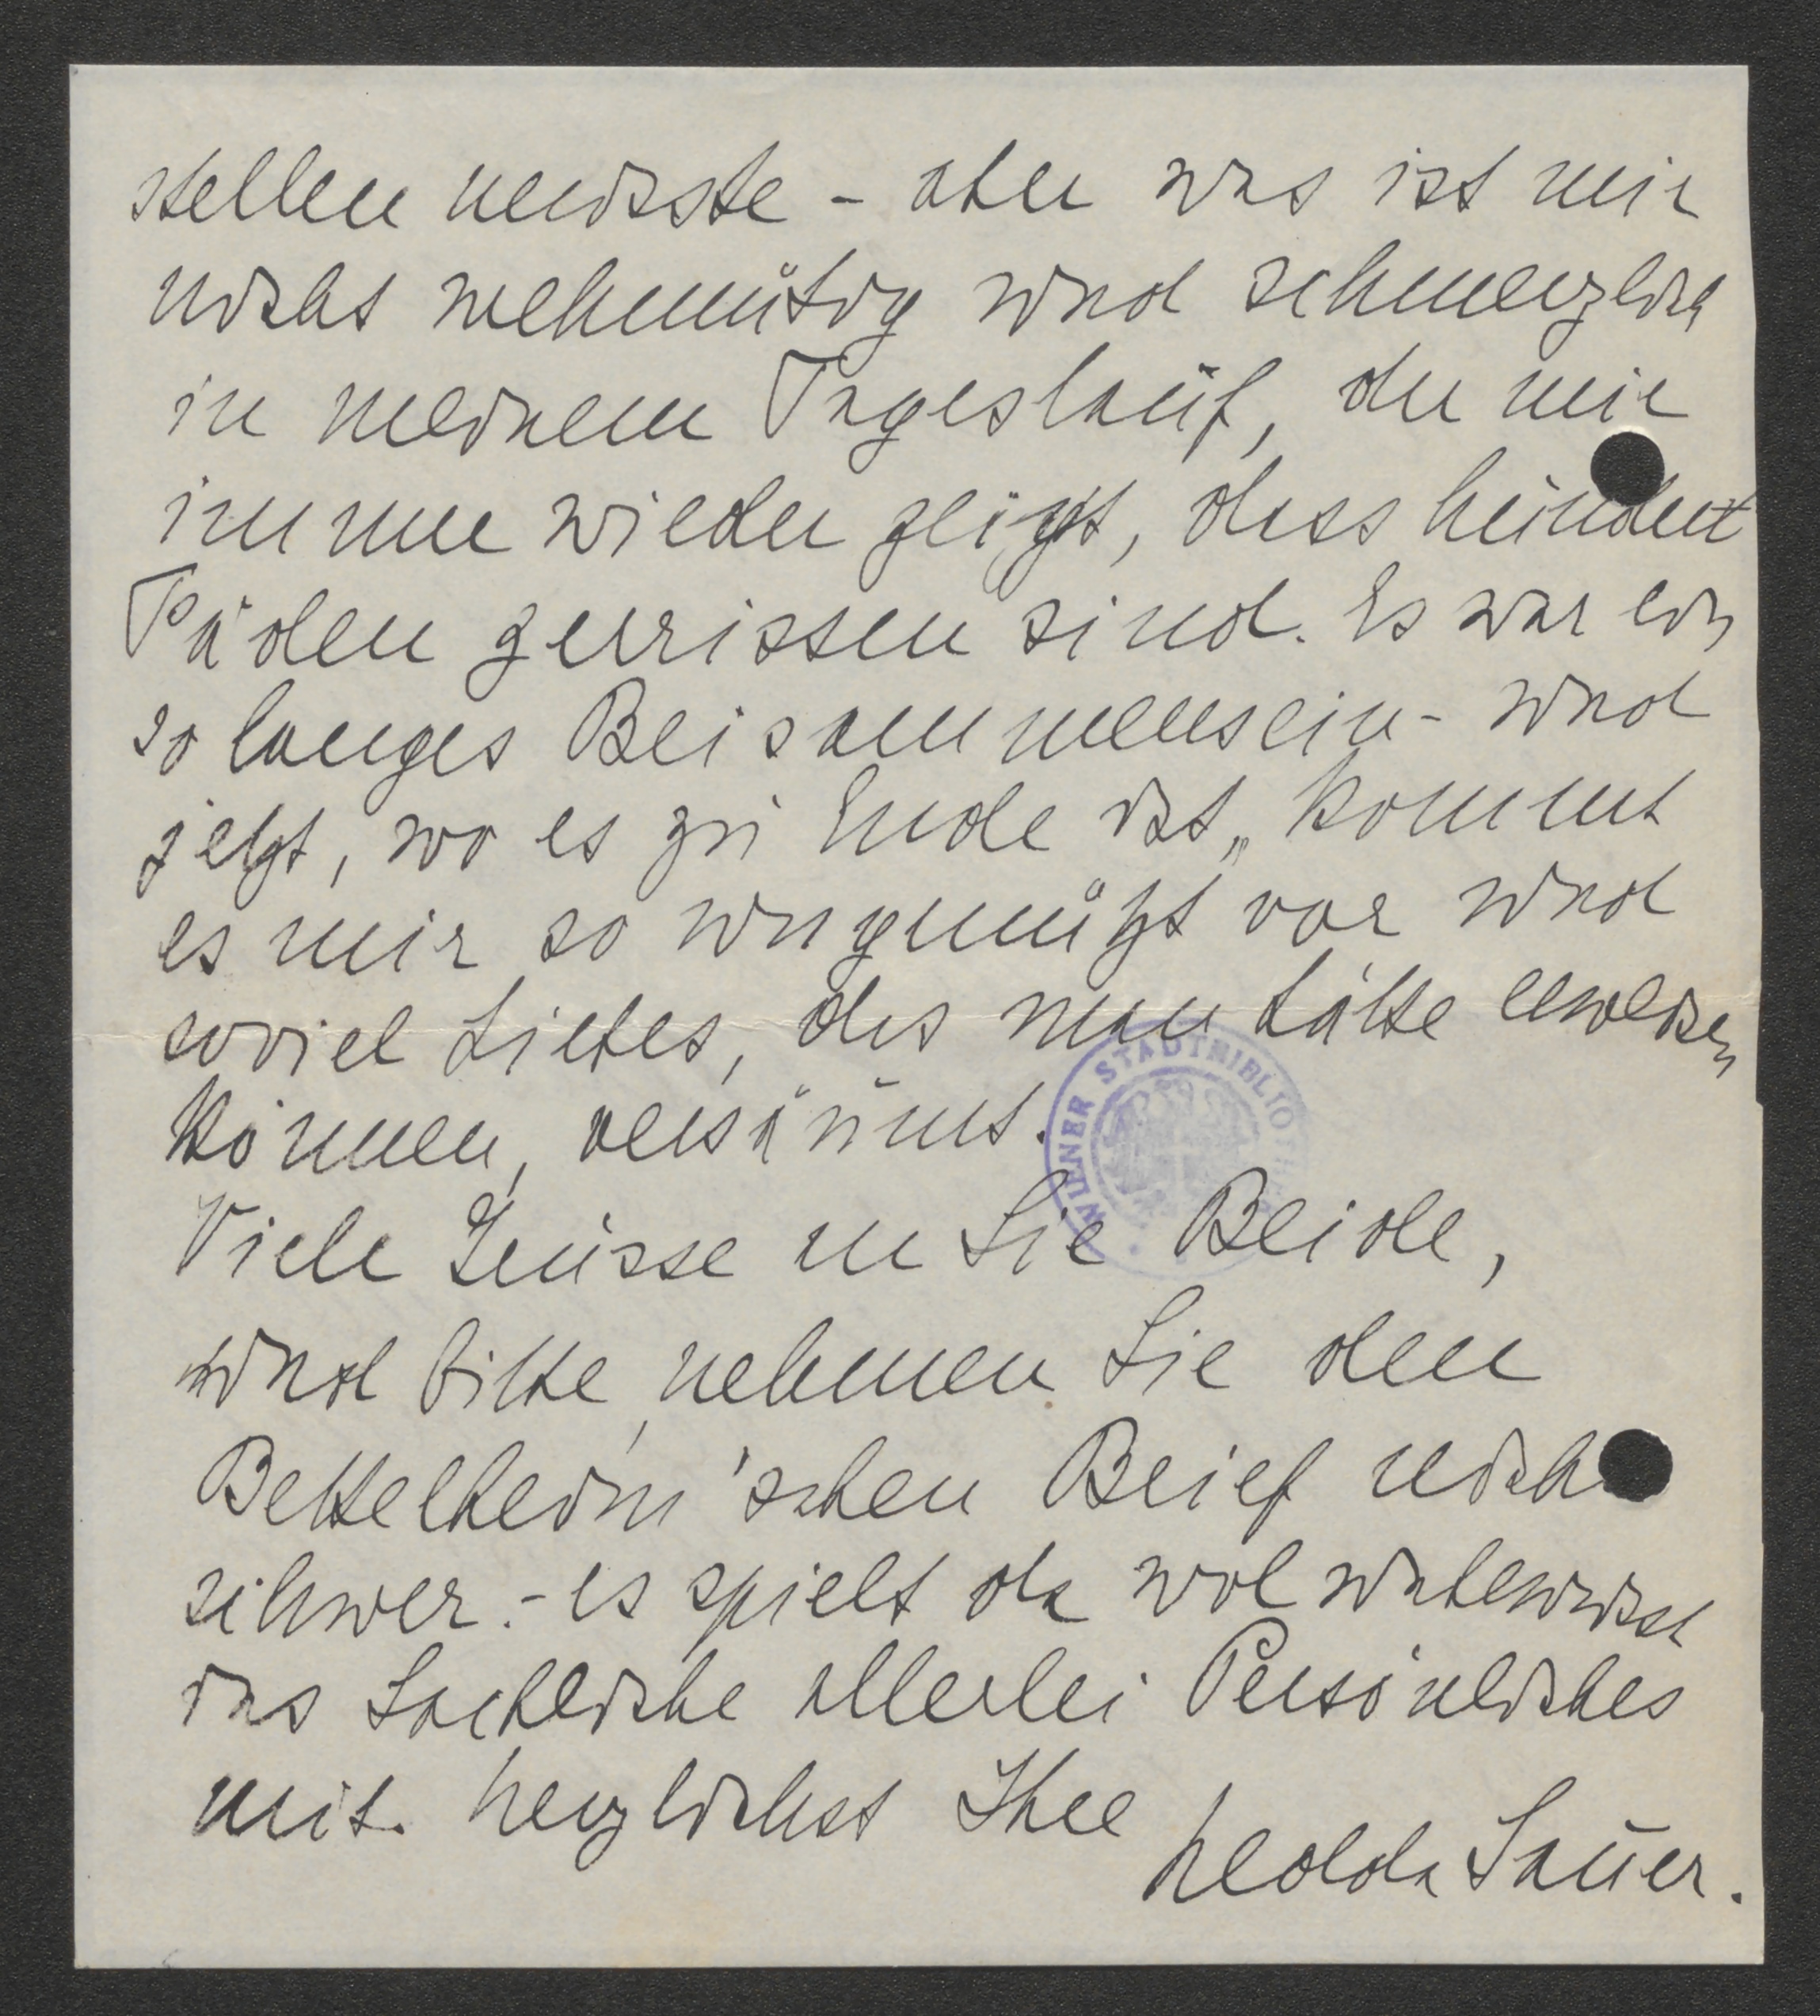 stellen müsste - aber was ist mir
nicht wehmütig und schmerzlich
in meinem Tageslauf, der mir
immer wieder zeigt, dass hundert
Fäden zerrissen sind. Es war ein
so langes Beisammensein - und
jetzt, wo es zu Ende ist, kommt
es mir so ungenützt vor und
soviel Liebes, das man hätte erweisen
können, versäumt.
WIENER STADTBIBLIOTHEK
Viele Grüsse an Sie Beide,
und bitte, nehmen Sie den
Bettelheim'schen Brief nicht
schwer. - es spielt da wol unbewusst
ins Sachliche allerlei Persönliches
mit. Herzlichst Ihre
Hedda Sauer.